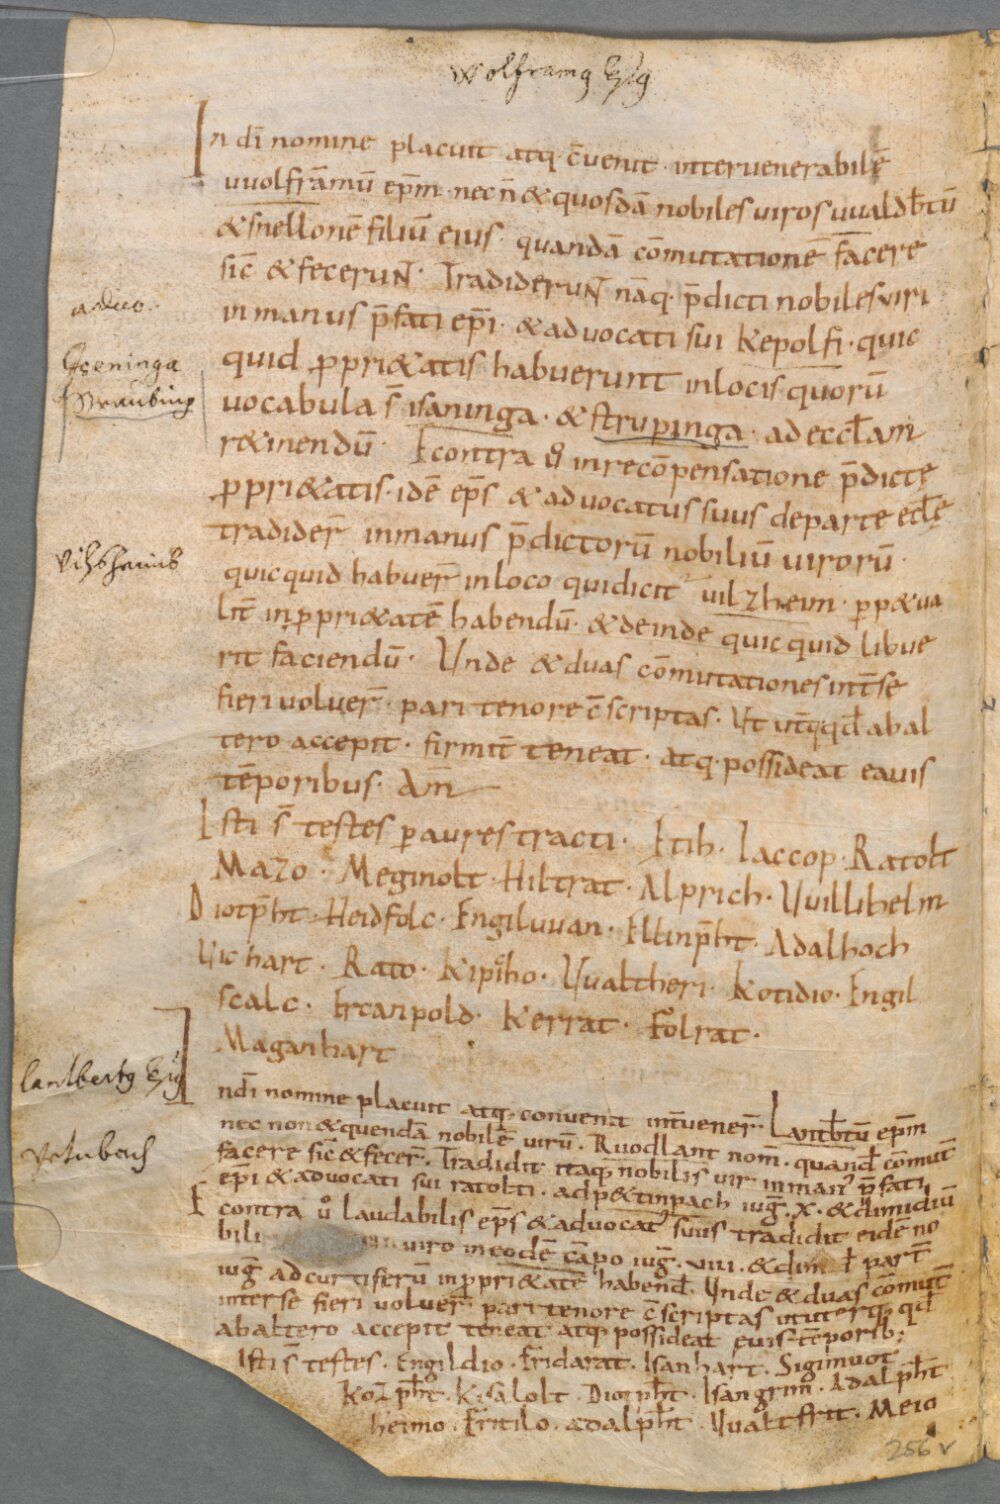 Wolframg Ep̄g
In dī nomine placuit atq; c̄venit intervenerabilē
uuolfrāmū ep̄m nec n̄ & quosdā nobiles viros uualdb̄tū
& snellonē filiū eius quandā cōmutationē facere
sic̄ & fecerunt. Tradiderunt nāq; p̄dicti nobiles viri
in manus p̄fati ep̄i. & advocati sui Kepolfi. quic
advo.
quid ꝓpri&atis habuerunt in locis quorū
Eseninga
vocabula s̄ isaninga. & strupinga. ad eccl̄am
Straubing
r&inendū. Econtra v̊ in recōpensatione p̄dictę
ꝓpri&atis. idē ep̄s & advocatus suus de parte eccl̄ę
trādider̄ in manus p̄dictorū nobiliū uirorū.
Vilshaims
quicquid habuer̄ in loco qui dicit᷑ uilzheim. ꝑp&ua
lit̄ in ꝓpri&atē habendū. & deinde quicquid libue
rit faciendū. Unde & duas cōmutationes int̄ se
fieri voluer̄. pari tenore c̄scriptas. Ut ut̄qq; qd̄ ab al
tero accepit. firmit̄ teneat. atq; possideat eavis
tēporibus. Am̄
Isti s̄ testes ꝑ aures tracti. Etih. Iaccop. Ratolt
Mazo. Meginolt. Hiltrat. Alprich. Uuillihelm
Diotp̄ht. Heidfolc. Engiluuan. Eltinp̄ht. Adalhoch
Uichart. Rato. Kipůho. Uualtheri. Kotidio. Engil
scalc. Ercanpold. Kerrat. Folrat.
Maganhart
Lantbertg Ep̄g
In dī nomine placuit atq; convenit int̄ vener̄. Lantb̄tū ep̄m
nec non & quendā nobilē virū. Ruodlant nom̄. quand̄ cōmut̄
Vetnbach
facere sic̄ & fecer̄. Tradidit itaq; nobilis vir in man᷒ p̄fati
ep̄i & advocati sui ratolti. ad p&tinpach iuḡ. x. & dimidiū
Econtra v̊ laudabilis ep̄s & advocat᷒ suus tradidit eidē no
bili viro in eodē cāpo iuḡ. viii. & dim̄ ł part̄
iuḡ ad curtiferū in ꝓpri&atē habend̄. Unde & duas cōmut̄
inter se fieri voluer̄. pari tenore c̄scriptas ut uterq; qd̄
ab altero accepit teneat atq; possideat ęuis tēporib;
Isti s̄ testes. Engildio. Fridarat. Isanhart. Sigimuot
Kozp̄ht. Kisalolt. Diotp̄ht. Isangrim. Adalp̄ht
heimo. Fritilo. adalp̄ht. Uualtfrit. Meio
256 v